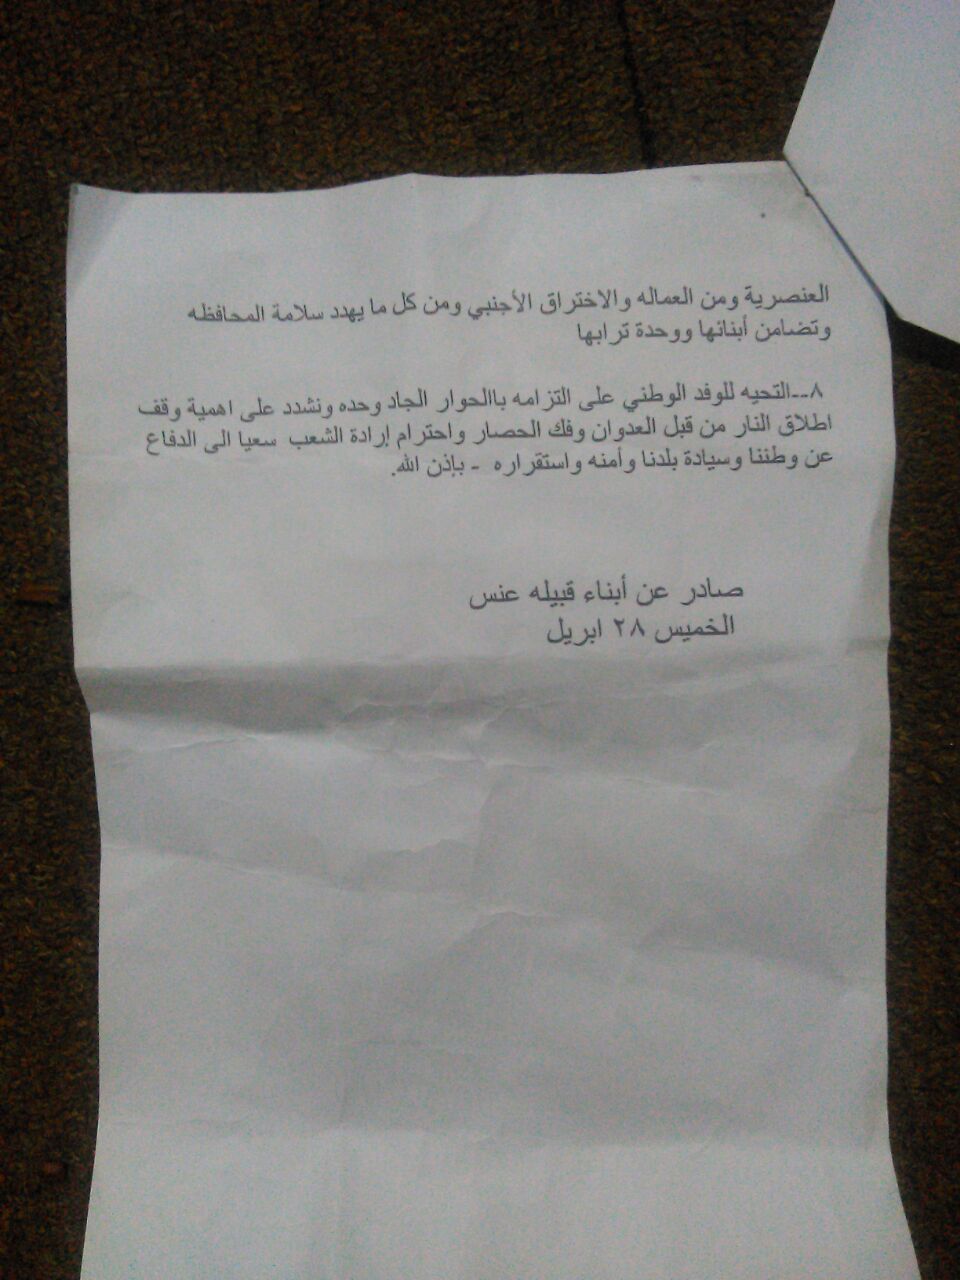 العنصرية ومن العماله والاختراق الأجنبي ومن كل ما يهدد سلامة المحافظه
وتضامن أبنائها ووحدة ترابها
٨--التحيه للوفد الوطني على التزامه باالحوار الجاد وحده ونشدد على اهمية وقف
اطلاق النار من قبل العدوان وفك الحصار واحترام إرادة الشعب سعيا الى الدفاع
عن وطننا وسيادة بلدنا وأمنه واستقراره - بإذن الله.
صادر عن أبناء قبيله عنس
الخميس ٢٨ ابريل